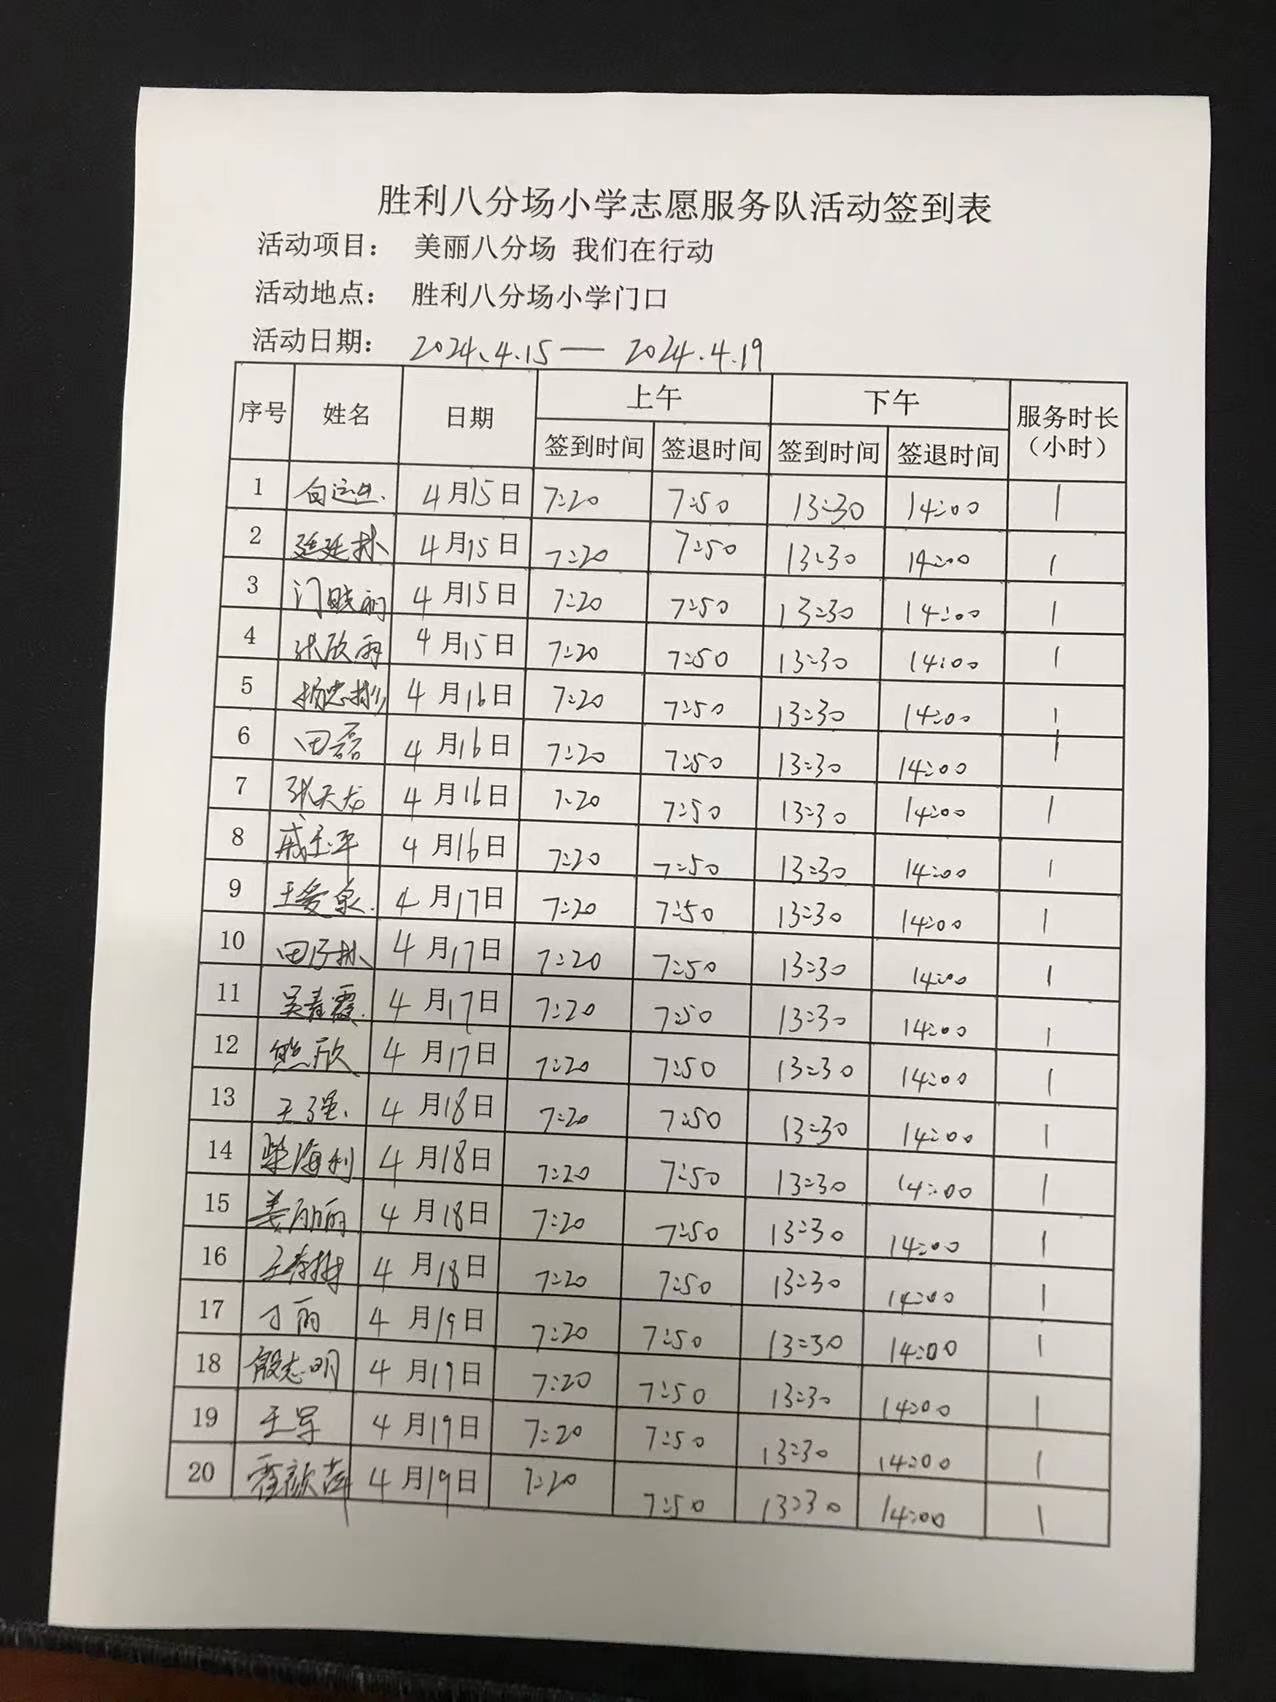 胜利八分场小学志愿服务队活动签到表
活动项目： 美丽八分场 我们在行动
活动地点： 胜利八分场小学门口
活动日期： 2024.4.15 — 2024.4.19
序号 姓名 日期 上午 下午 服务时长（小时）
签到时间 签退时间 签到时间 签退时间
1 4月15日 7:20 7:50 13:30 14:00 1
2 4月15日 7:20 7:50 13:30 14:00 1
3 4月15日 7:20 7:50 13:30 14:00 1
4 张欣雨 4月15日 7:20 7:50 13:30 14:00 1
5 4月16日 7:20 7:50 13:30 14:00 1
6 田磊 4月16日 7:20 7:50 13:30 14:00 1
7 张天龙 4月16日 7:20 7:50 13:30 14:00 1
8 戚玉平 4月16日 7:20 7:50 13:30 14:00 1
9 王爱泉 4月17日 7:20 7:50 13:30 14:00 1
10 4月17日 7:20 7:50 13:30 14:00 1
11 吴青霞 4月17日 7:20 7:50 13:30 14:00 1
12 熊欣 4月17日 7:20 7:50 13:30 14:00 1
13 王强 4月18日 7:20 7:50 13:30 14:00 1
14 柴海利 4月18日 7:20 7:50 13:30 14:00 1
15 姜丽丽 4月18日 7:20 7:50 13:30 14:00 1
16 4月18日 7:20 7:50 13:30 14:00 1
17 丁丽 4月19日 7:20 7:50 13:30 14:00 1
18 殷志明 4月19日 7:20 7:50 13:30 14:00 1
19 王军 4月19日 7:20 7:50 13:30 14:00 1
20 4月19日 7:20 7:50 13:30 14:00 1